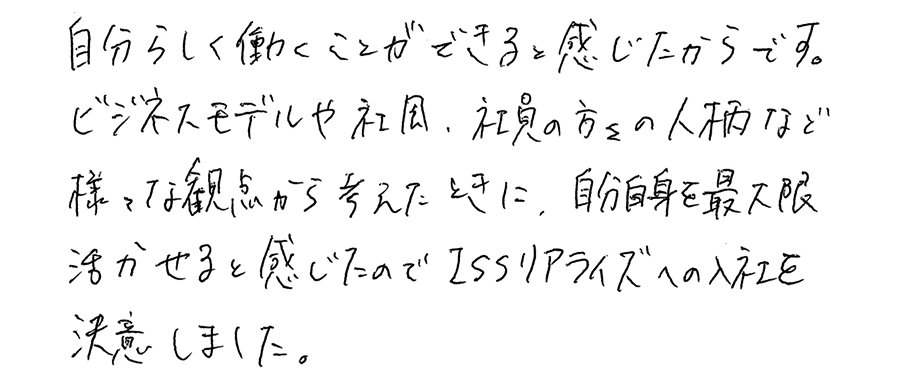 自分らしく働くことができると感じたからです。
ビジネスモデルや社風、社員の方々の人柄など
様々な観点から考えたときに、自分自身を最大限
活かせると感じたのでISSリアライズへの入社を
決意しました。